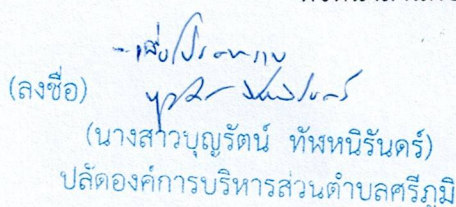 - เพื่อโปรดทราบ
(ลงชื่อ)
(นางสาวบุญรัตน์ ทัพหนิรันดร์)
ปลัดองค์การบริหารส่วนตำบลศรีภูมิ